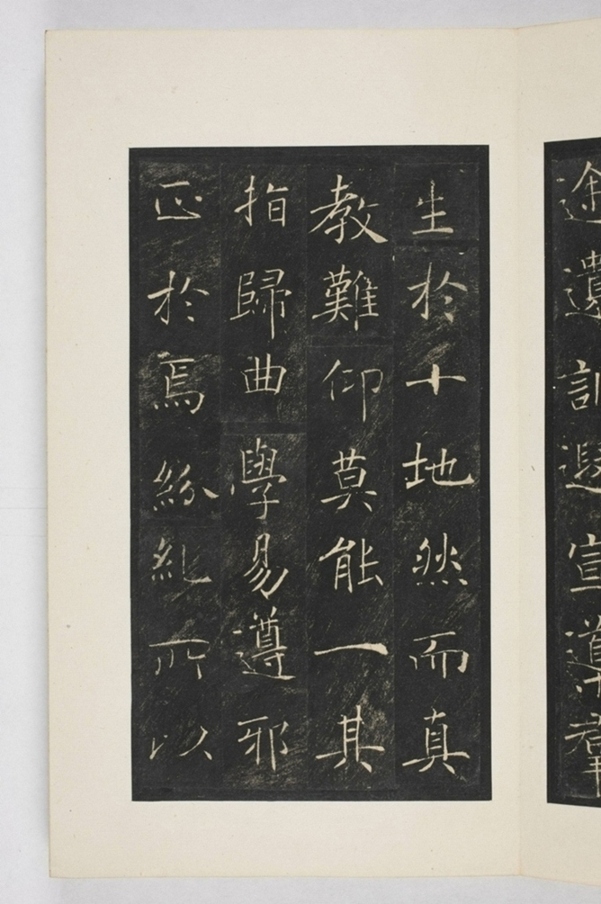 途遺訓遐宣導羣
生於十地然而真
教難仰莫能一其
指歸曲學易遵邪
正於焉紛糺所以